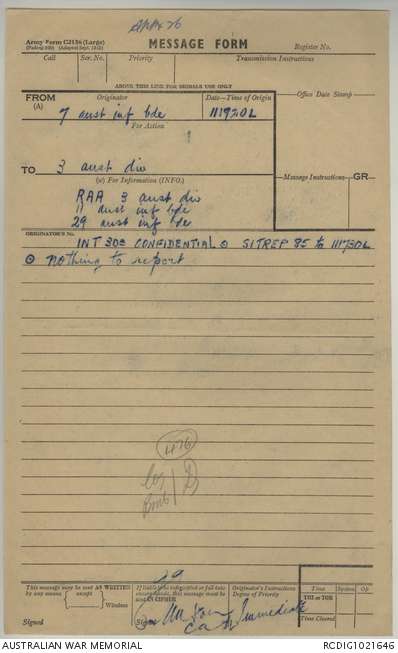 Army Form C2136 (Large)
MESSAGE FORM
Register No.
Call
Ser. No.
Priority
Transmission Instructions
ABOVE THIS LINE FOR SIGNALS USE ONLY
FROM
(A)
Originator
Date—Time of Origin
Office Date Stamp
7 aust inf bde
111920L
For Action
TO
3 aust div
(W) For Information (INFO.)
Message Instructions
GR
RAA 3 aust div
11 aust inf bde
29 aust inf bde
ORIGINATOR'S No.
INT 308 CONFIDENTIAL ⊙ SITREP 85 to 111730L
⊙ nothing to report
476
This message may be sent AS WRITTEN
by any means
except
Wireless
If liable to be intercepted or fall into
enemy hands, this message must be
sent IN CIPHER
Originator's Instructions
Degree of Priority
Time
System
Op
THI or TOR
Time Cleared
Immediate
Signed
Signed
AUSTRALIAN WAR MEMORIAL
RCDIG1021646